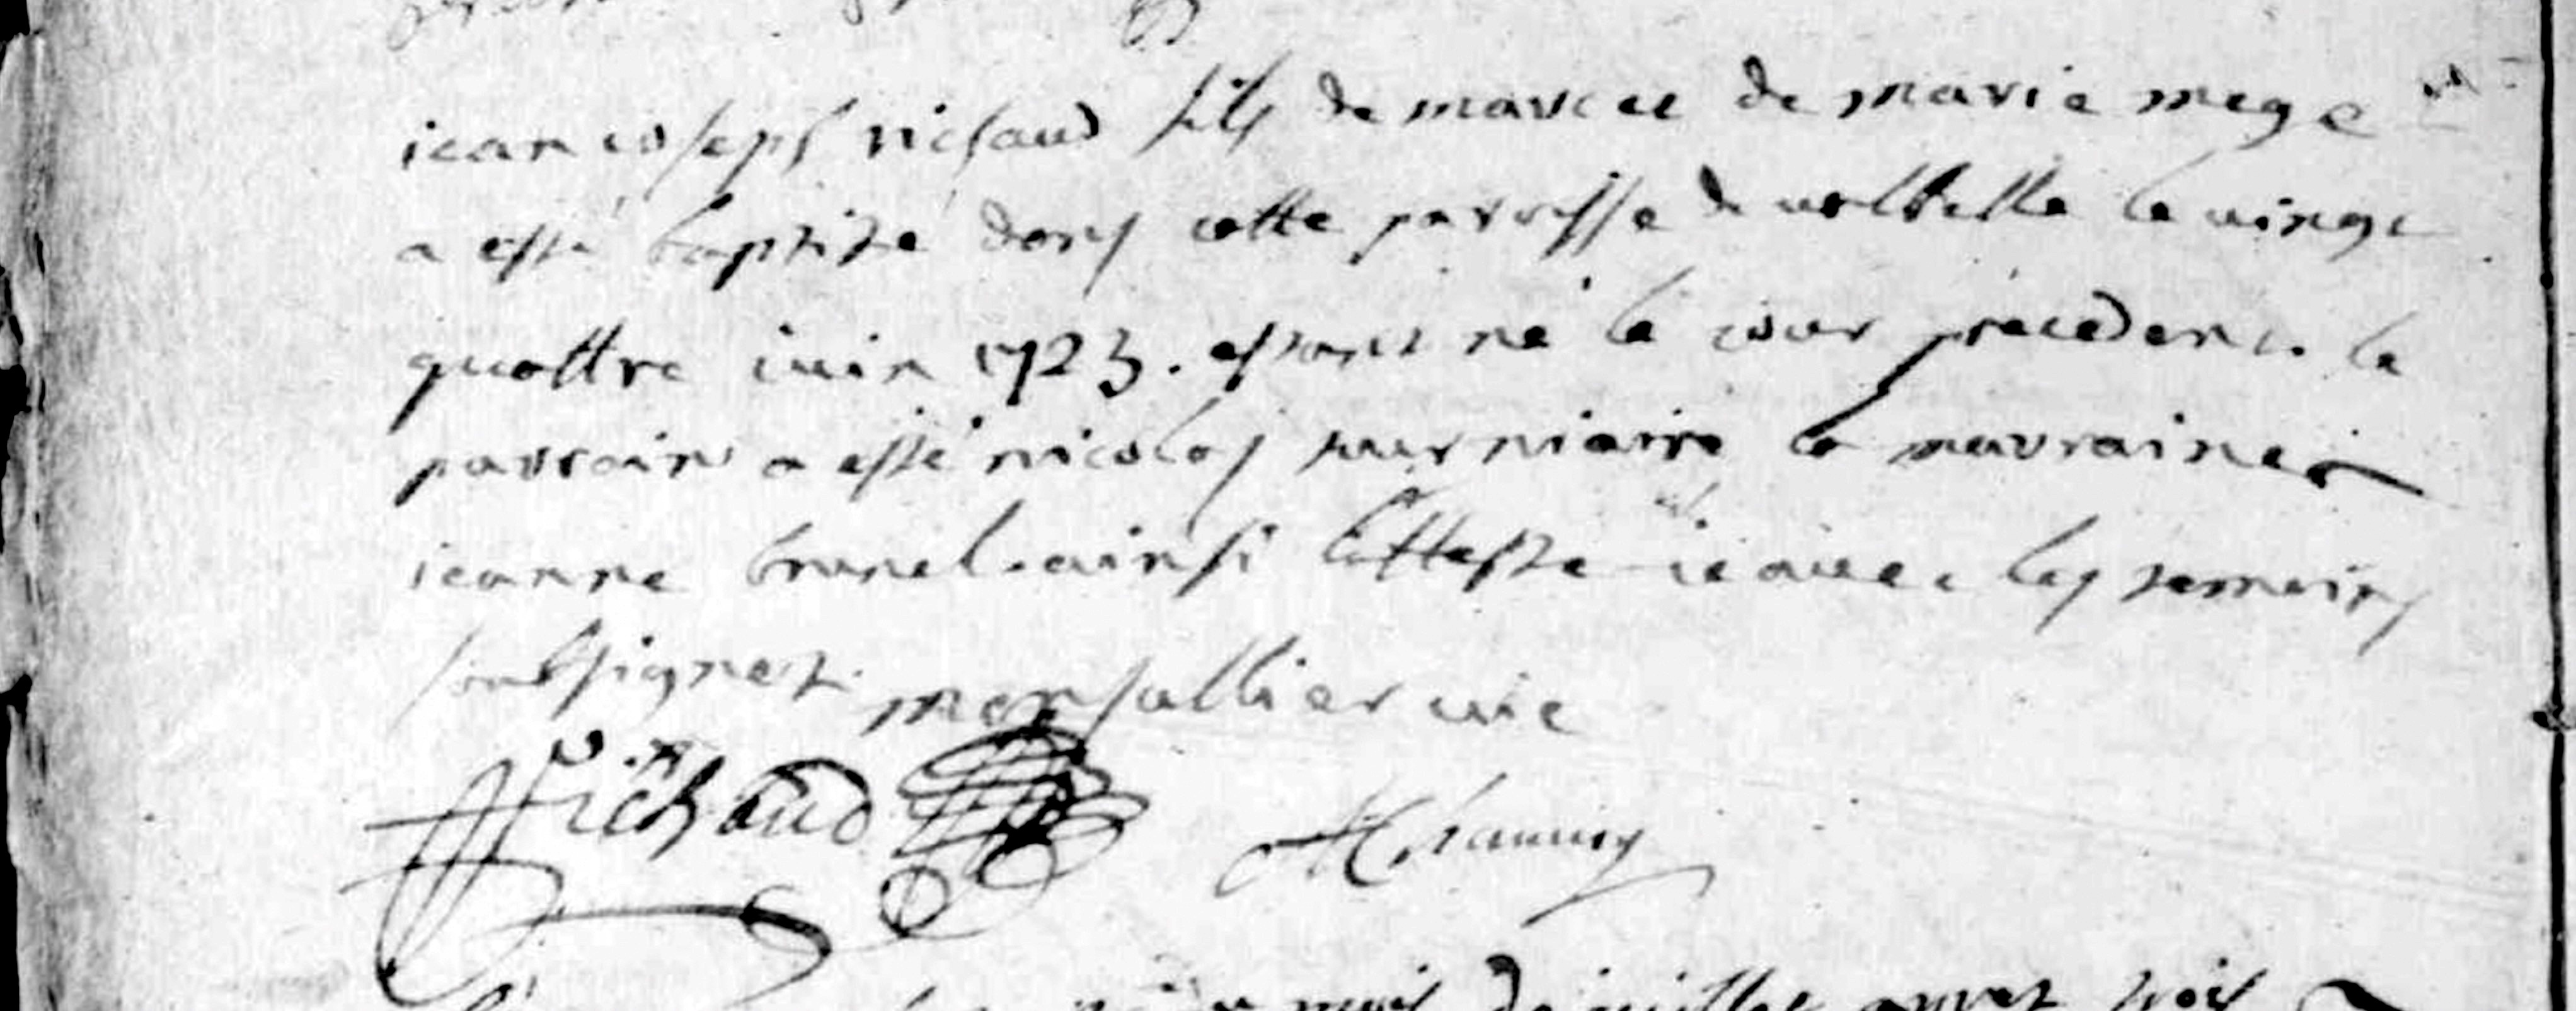 iean ioseph richaud fils de marcel de marie mege
a esté baptizé dans cette parroisse de valbelle le vingt
quattre iuin 1723. estant né le iour précédent. le
parrain a esté nicolas la marraine
ieanne brunel. ainsi l'atteste ie avec les temoins
soubsignez. monsallier vic
Richaud
de juillet